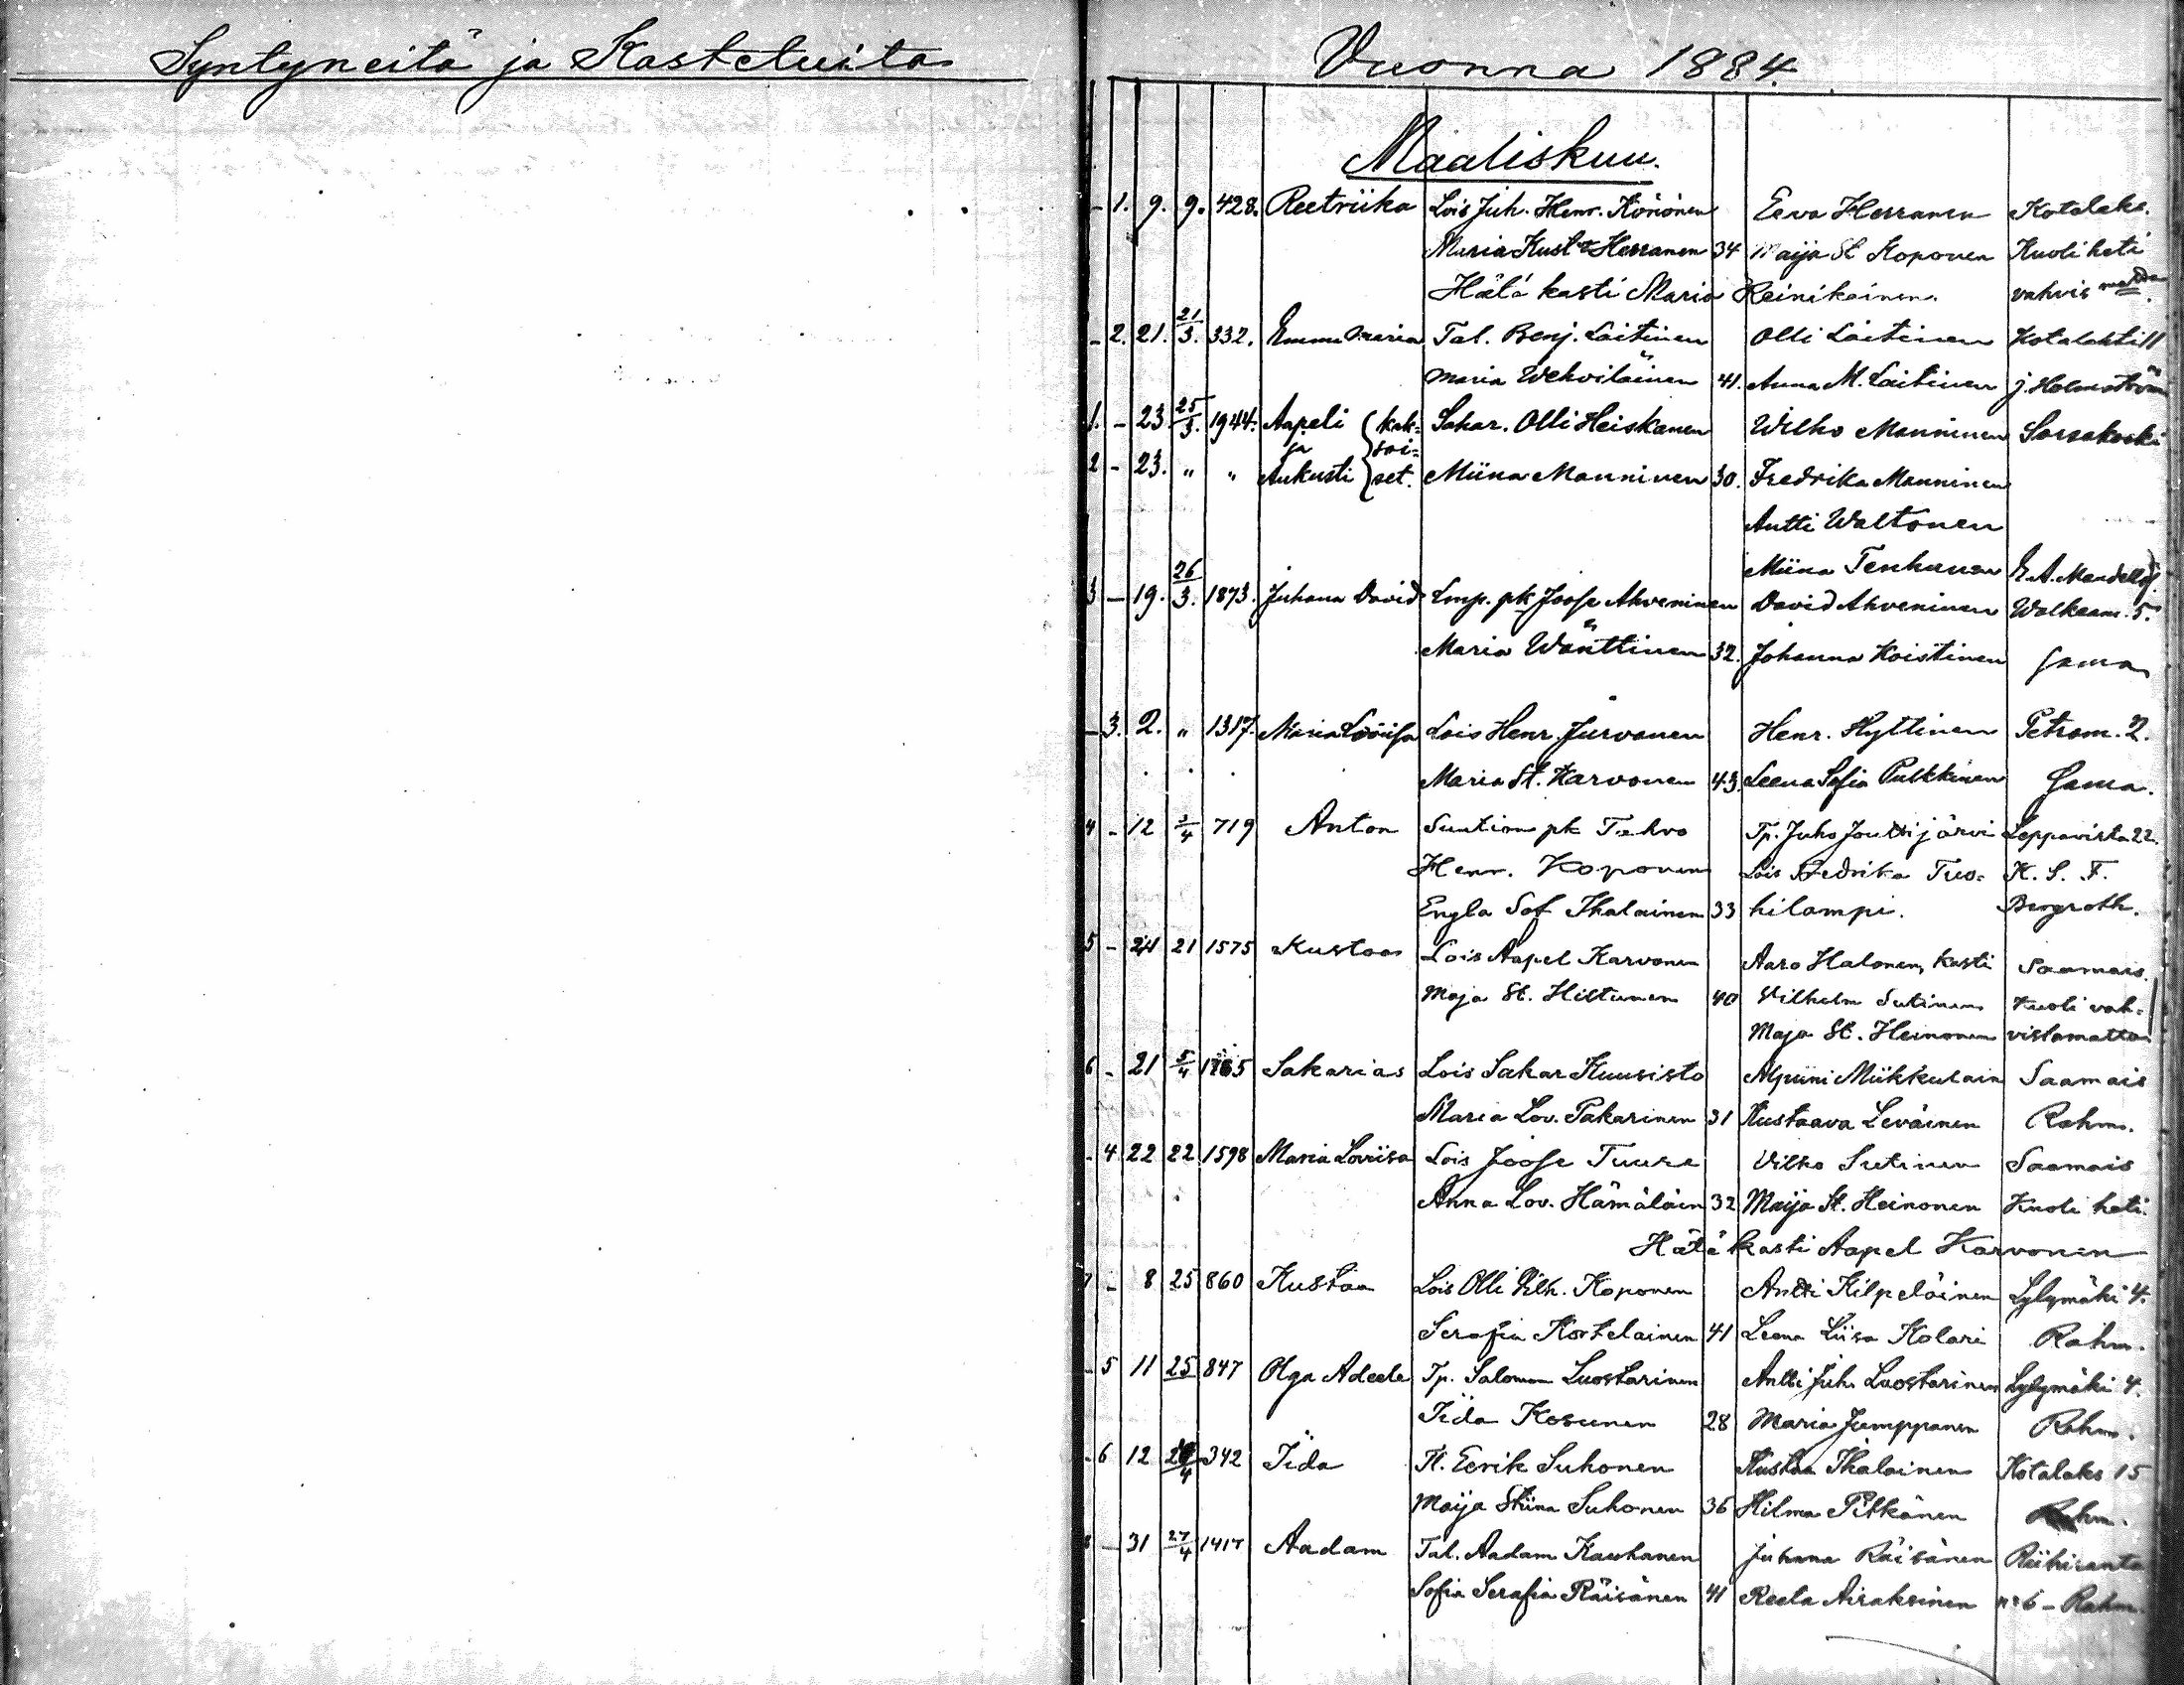 Syntyneitä ja Kastetuita
Vuonna 1884.
Maaliskuu.
- 1. 9. 9. 428. Reetriika Lois Juh. Henr. Könönen Eeva Herranen Kotalaks.
Maria Kust. Herranen 34 Maija St Koponen Kuoli heti
Hätä kasti Maria Reinikainen. vahvis
- 2. 21. 21/3. 332. Emma Maria Tal. Benj. Laitinen Olli Laitinen Kotalahti 11
Maria Wehviläinen 41. Anna M. Laitinen j. Holmström
1. - 23 25/3. 1944. Aapeli (kak= Sakar. Olli Heiskanen Wilho Manninen Sorsakoski
ja soi=
2 - 23. " " Aukusti set. Miina Manninen 30. Fredrika Manninen
Antti Waltonen
Miina Tenhunen E. A. Mandellöf.
3 - 19. 26/3. 1873. Juhana David Lmp. pk Joose Ahveninen David Ahveninen Walkeam. 5.
Maria Wänttinen 32. Johanna Koistinen Sama
- 3. 2. " 1317. Maria Loviisa Lois Henr. Jurvanen Henr. Hyttinen Petrom. 2.
Maria St. Karvonen 43. Leena Sofia Pulkkinen Sama.
4 - 12 3/4 719 Anton Suution pk Tahvo Tp. Juho Joutsijärvi Leppävirta 22.
Henr. Koponen Lois Fredrika Tuo= K. S. F.
Engla Sof Ihalainen 33 hilampi. Bergroth.
5 - 24 21 1575 Kustaa Lois Aapel Karvonen Aaro Halonen, kasti Saamais.
Maja St. Hiltunen 40 Vilhelm Sutinen Kuoli vah=
Maja St. Heinonen vistamatta
6 - 21 5/4 1765 Sakarias Lois Sakar Kuusisto Alpiini Miikkulain Saamais
Maria Lov. Pakarinen 31 Kustaava Leväinen Rahm.
- 4 22 22 1598 Maria Loviisa Lois Joose Tuure Vilho Sutinen Saamais
Anna Lov. Hämäläin 32 Maija St. Heinonen Kuoli heti.
Hätä kasti Aapel Karvonen
7 - 8 25 860 Kustaa Lois Olli Vilh. Koponen Antti Kilpeläinen Lylymäki 4.
Serafia Kortelainen 41 Leena Liisa Kolari Rahm.
- 5 11 25 847 Olga Adeele Tp. Salomon Luostarinen Antti Juh. Luostarinen Lylymäki 4.
Iida Kosunen 28 Maria Jumppanen Rahm.
- 6 12 342 Iida Tl. Eerik Suhonen Kustaa Ihalainen Kotalaks 15
Maija Stiina Suhonen 36 Hilma Pitkänen Rahm.
8 - 31 27/4 1417 Aadam Tal. Aadam Kauhanen Juhana Räisänen Riihiranta
Sofia Serafia Räisänen 41 Reeta Airaksinen no 6 - Rahm.